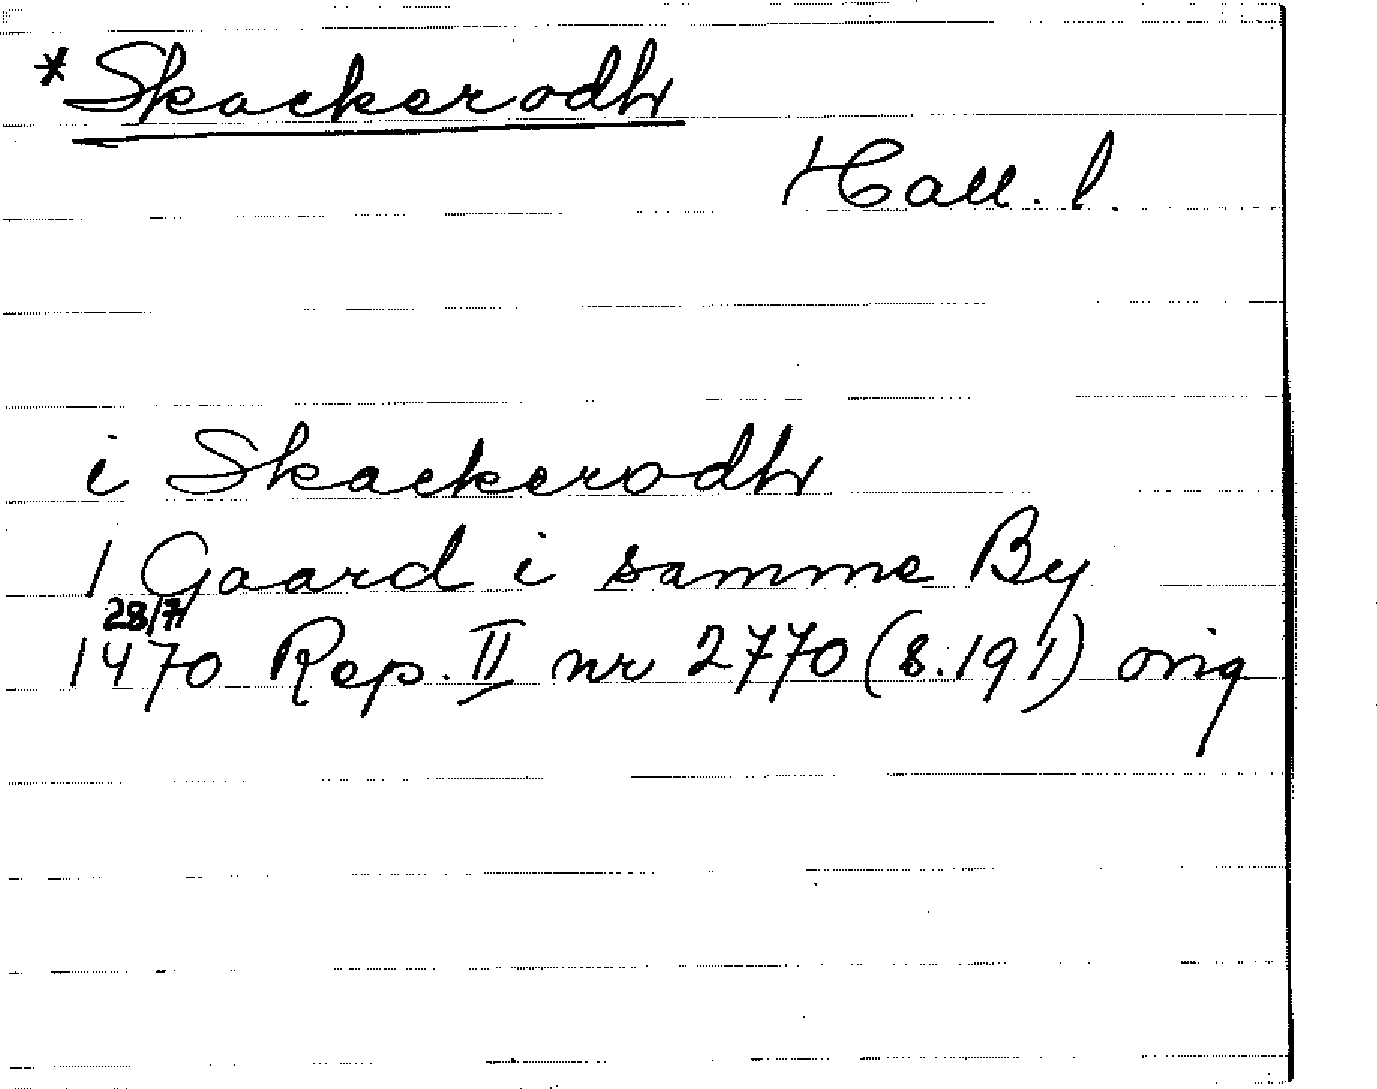 *Skackerodh
Hall. l.
i Skackerodh
1 Gaard i samme By
28/7
1470 Rep. II nr 2770 (s. 191) orig